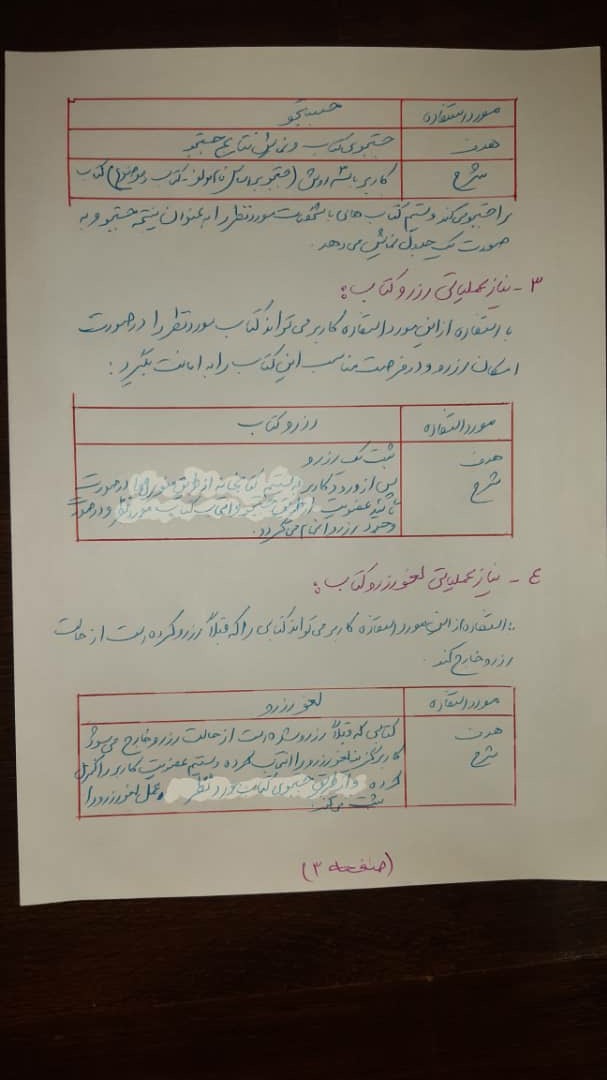 مورد استفاده جستجو
هدف جستجوی کتاب و نمایش نتایج جستجو
شرح کاربر با سه روش (جستجو بر اساس نام مولف - کتاب و موضوع) کتاب
را جستجو می‌کند و سیستم کتاب های با مشخصات مورد نظر را به عنوان نتیجه جستجو و به
صورت یک جدول نمایش می دهد.
۳ - نیاز عملیاتی رزرو کتاب:
با استفاده از این مورد استفاده کاربر می تواند کتاب مورد نظر را در صورت
امکان رزرو و در فرصت مناسب این کتاب را به امانت بگیرد:
مورد استفاده رزرو کتاب
هدف ثبت یک رزرو
شرح پس از ورود کاربر به سیستم کتابخانه از طریق در صورت
تائید عضویت از طریق جستجو کتاب مورد نظر و در صورت
رزرو انجام می گردد.
۴ - نیاز عملیاتی لغو رزرو کتاب:
با استفاده از این مورد استفاده کاربر می تواند کتابی را که قبلاً رزرو کرده است از حالت
رزرو خارج کند.
مورد استفاده لغو رزرو
هدف کتابی که قبلاً رزرو شده است از حالت رزرو خارج می شود
شرح کاربر گزینه لغو رزرو را انتخاب کرده و سیستم عضویت کاربر را کنترل
کرده و از طریق جستجوی کتاب مورد نظر عمل لغو رزرو را
ثبت می کند.
(صفحه ۳)